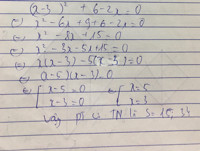 (x-3)² + 6-2x=0
(=) x² - 6x + 9 + 6 - 2x = 0
(=) x² - 8x + 15 = 0
(=) x² - 3x - 5x + 15 = 0
(=) x(x-3) - 5(x-3) = 0
(=) (x-5)(x-3) = 0
(=) [ x-5 = 0 (=) [ x=5
x-3 = 0 x=3
Vậy pt có TN là S =